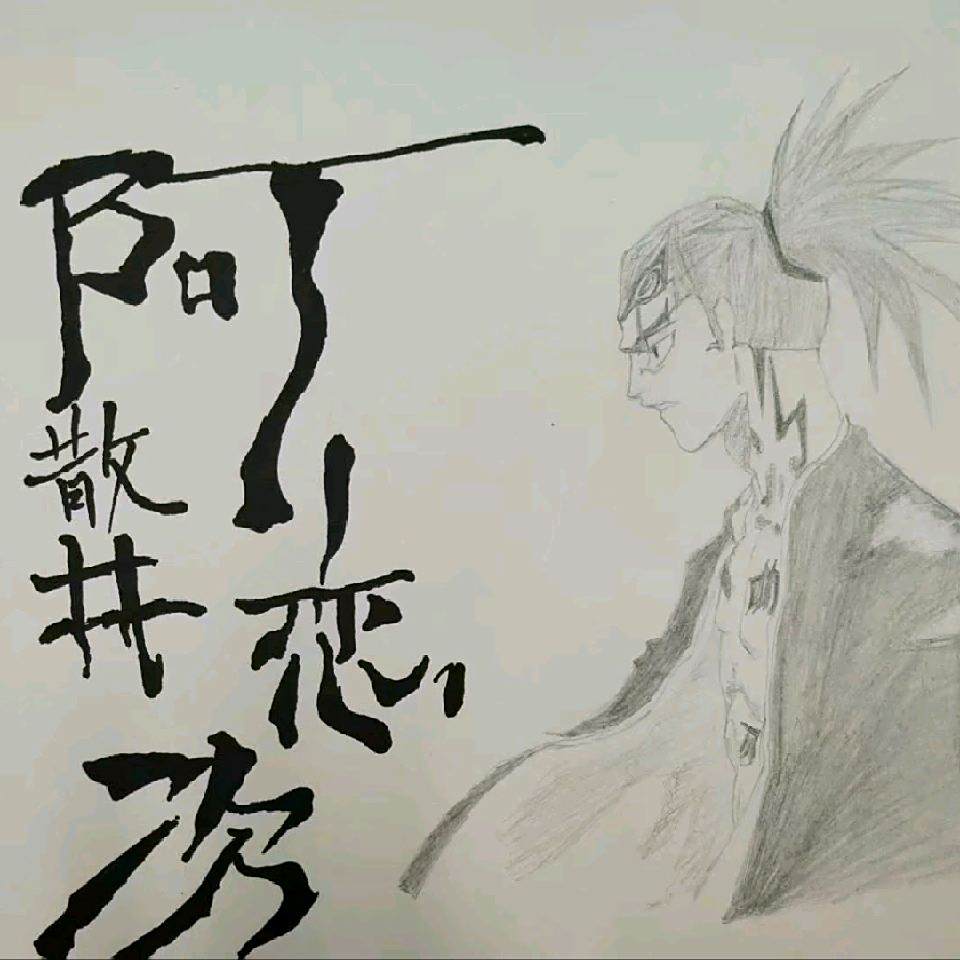 阿散井恋次